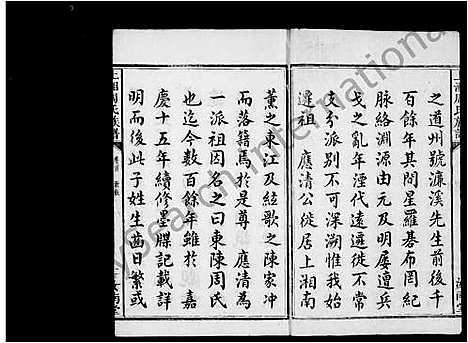 上湘周氏族譜
之道州號濂溪先生前後千
百餘年其間星羅碁布罔紀
脉絡淵源由元及明屢遭兵
戈之亂年湮代遠遷徙不常
支分派別不可深溯惟我始
遷祖 應清公徙居上湘南
薰之東江及絃歌之陳家冲
而落籍焉於是尊 應清爲
一派祖因名之曰東陳周氏
也迄今數百餘年雖於 嘉
慶十五年續修墨牒記載詳
明而後此子姓生齒日繁或
上湘周氏族譜
汝南堂